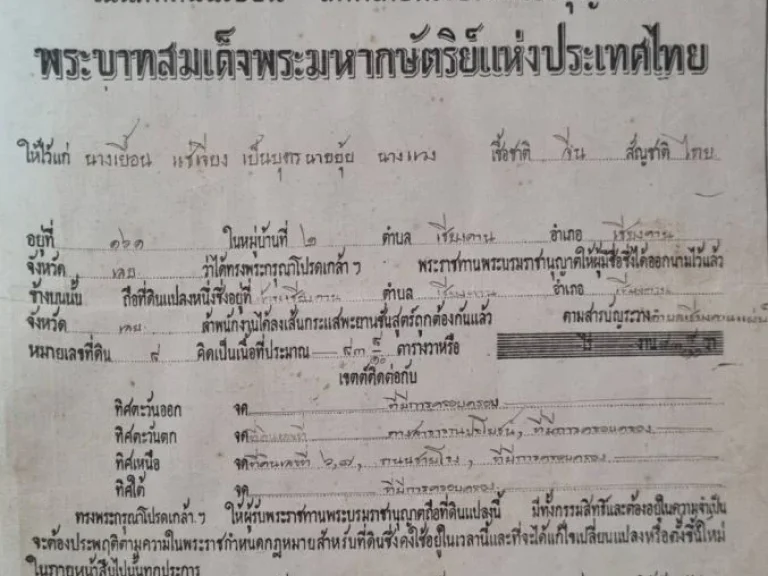 พระบาทสมเด็จพระมหากษัตริย์แห่งประเทศไทย
ให้ไว้แก่ นางเยื้อน แซ่เจียง เป็นบุตร นายอุ้ย นางแวง เชื้อชาติ จีน สัญชาติ ไทย
อยู่ที่ ๑๖๑ ในหมู่บ้านที่ ๒ ตำบล เชียงคาน อำเภอ เชียงคาน
จังหวัด เลย ว่าได้ทรงพระกรุณาโปรดเกล้า ฯ พระราชทานพระบรมราชานุญาตให้ผู้มีชื่อซึ่งได้ออกนามไว้แล้ว
ข้างบนนั้น ถือที่ดินแปลงหนึ่งซึ่งอยู่ที่ เชียงคาน ตำบล เชียงคาน อำเภอ เชียงคาน
จังหวัด เลย เจ้าพนักงานได้ลงเส้นกระแสพะยานชันสูตร์ถูกต้องกันแล้ว ตามสารบัญระวาง
หมายเลขที่ดิน ๘ คิดเป็นเนื้อที่ประมาณ ๘๓ ตารางวาหรือ ไร่ งาน วา
เขตต์ติดต่อกับ
ทิศตะวันออก จด ที่มีการครอบครอง
ทิศตะวันตก จด ทางสาธารณประโยชน์, ที่มีการครอบครอง
ทิศเหนือ จด ที่ดินเลขที่ ๖,๗, ถนนชายโขง, ที่มีการครอบครอง
ทิศใต้ จด ที่มีการครอบครอง
ทรงพระกรุณาโปรดเกล้า ฯ ให้ผู้รับพระราชทานพระบรมราชานุญาตถือที่ดินแปลงนี้ มีทั้งกรรมสิทธิและต้องอยู่ในความจำเป็น
จะต้องประพฤติตามความในพระราชกำหนดกฎหมายสำหรับที่ดินซึ่งคงใช้อยู่ในเวลานี้และที่จะได้แก้ไขเปลี่ยนแปลงหรือตั้งขึ้นใหม่
ในภายหน้าสืบไปนั้นทุกประการ